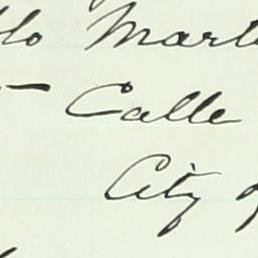 llo Mart
Calle
City of